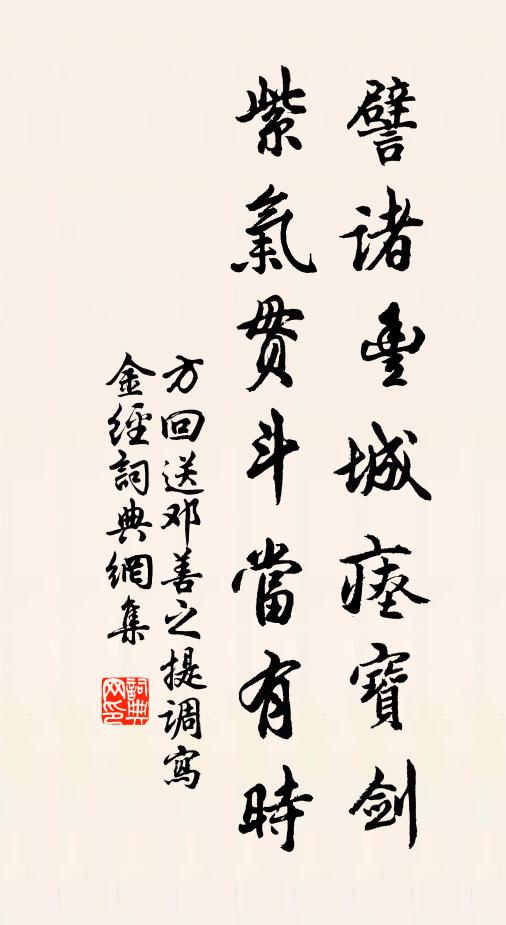 譬诸豐城瘗寶剑
紫氣贯斗當有時
方回送邓善之提调寫
金經詞典網集
詞典
网印